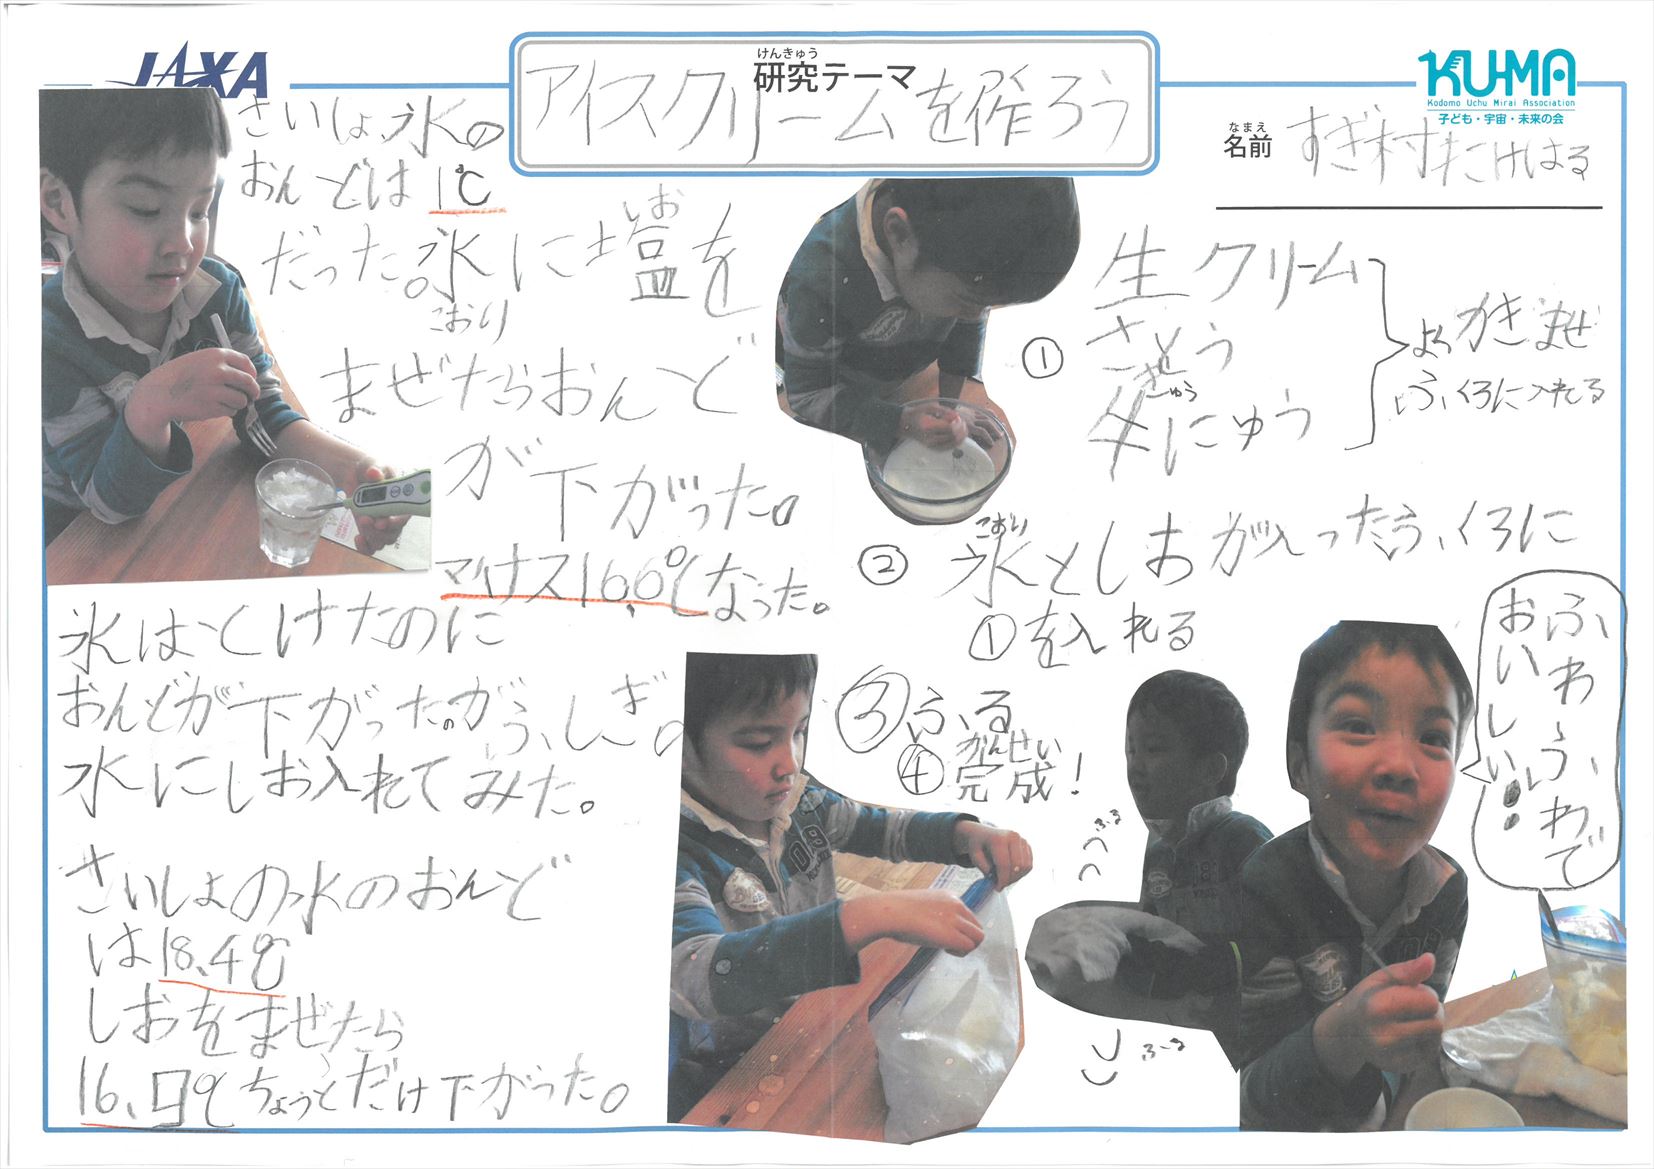 JAXA
けんきゅう
研究テーマ
アイスクリームを作ろう
KU-MA
Kodomo Uchu Mirai Association
子ども・宇宙・未来の会
なまえ
名前
すぎ村たけはる
さいしょ、氷の
おんどは1℃
だった。氷に塩を
こおり
しお
まぜたらおんど
が下がった。
マイナス16.6℃なった。
氷はとけたのに
おんどが下がったのがふしぎ。
水にしお入れてみた。
さいしょの水のおんど
は18.4℃
しおをまぜたら
16.9℃ちょっとだけ下がった。
①
生クリーム
さとう
ぎゅう
牛にゅう
よくかきまぜ
ふくろに入れる
②
こおり
氷としおが入ったふくろに
①を入れる
③ふる
かんせい
④完成!
ふる
ふる
ふわふわで
おいしい!